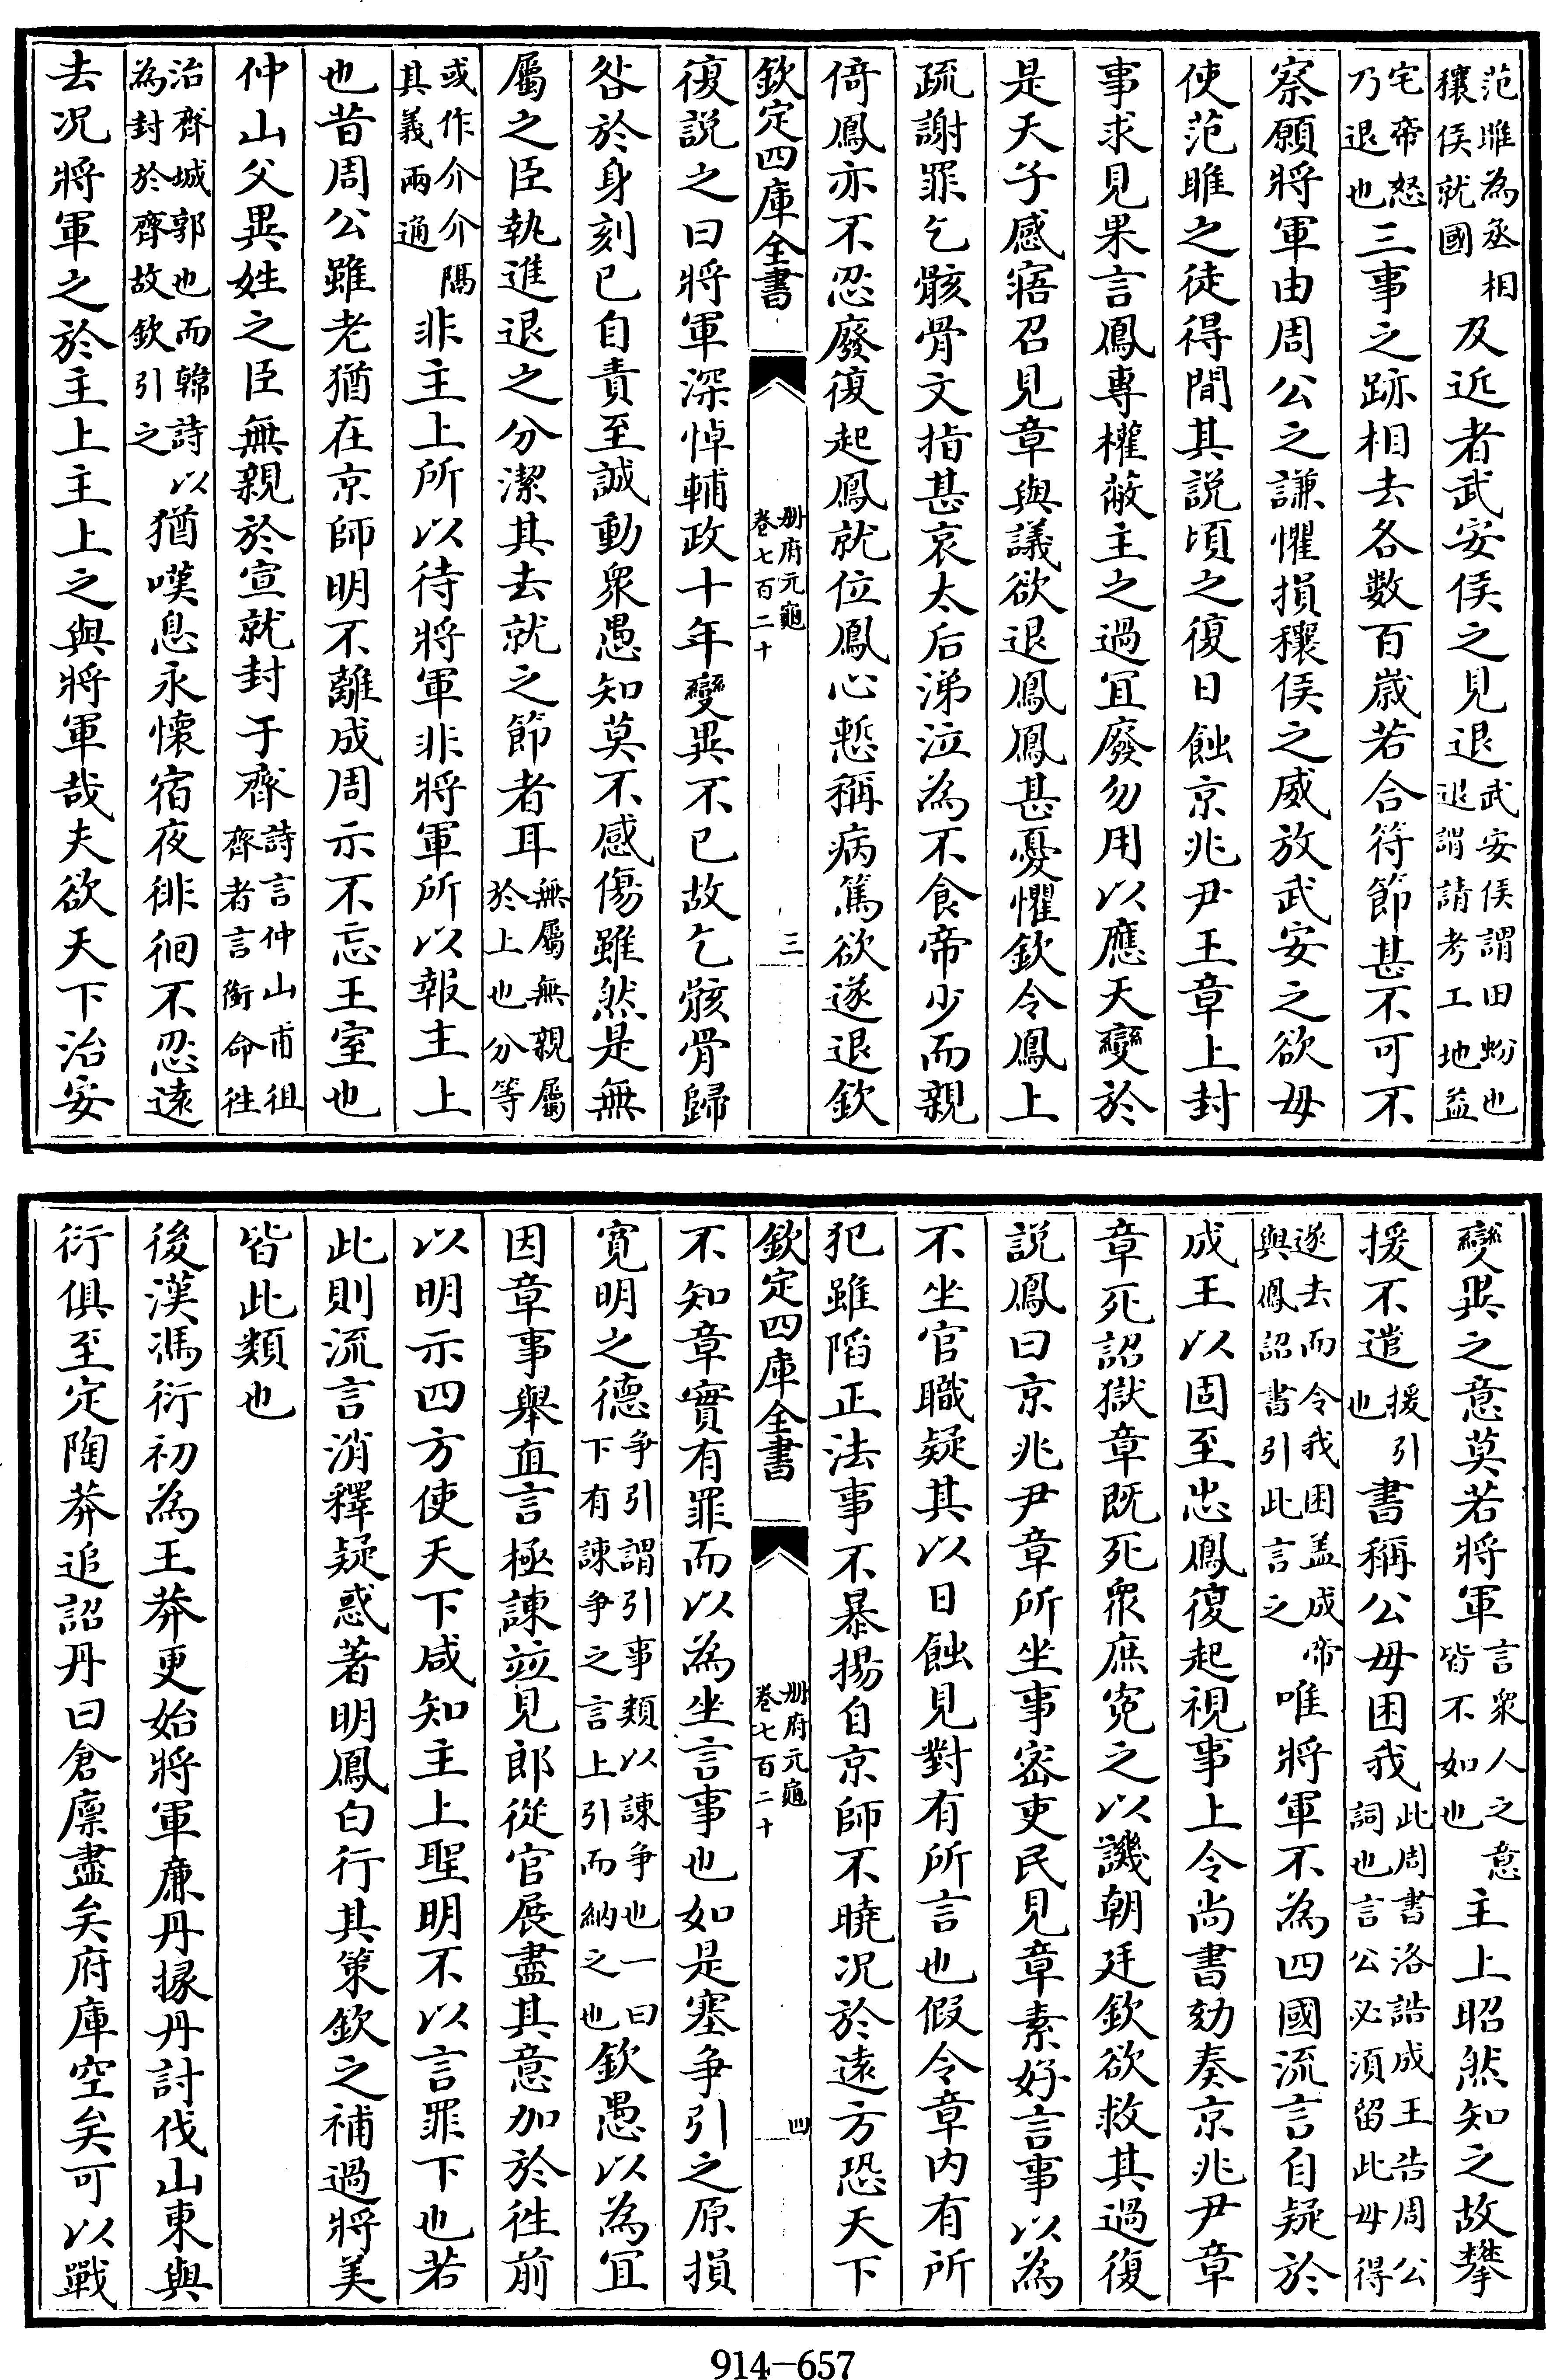 范雎為丞相穰侯就國及近者武安侯之見退武安侯謂田蚡也退謂請考工地益
宅帝怒乃退也三事之跡相去各數百歳若合符節甚不可不
察願將軍由周公之謙懼損穰侯之威放武安之欲毋
使范雎之徒得間其説頃之復日蝕京兆尹王章上封
事求見果言鳳專權蔽主之過宜廢勿用以應天變於
是天子感寤召見章與議欲退鳳鳳甚憂懼欽令鳳上
疏謝罪乞骸骨文指甚哀太后涕泣為不食帝少而親
倚鳳亦不忍廢復起鳳就位鳳心慙稱病篤欲遂退欽
欽定四庫全書 冊府元龜卷七百二十 三
復説之曰將軍深悼輔政十年變異不已故乞骸骨歸
咎於身刻已自責至誠動衆愚知莫不感傷雖然是無
屬之臣執進退之分潔其去就之節者耳無屬無親屬於上也分等
或作介介隔其義兩通非主上所以待將軍非將軍所以報主上
也昔周公雖老猶在京師明不離成周示不忘王室也
仲山父異姓之臣無親於宣就封于齊詩言仲山甫徂齊者言銜命往
治齊城郭也而韓詩以為封於齊故欽引之猶嘆息永懐宿夜徘徊不忍遠
去况將軍之於主上主上之與將軍哉夫欲天下治安
變異之意莫若將軍言衆人之意皆不如也主上昭然知之故攀
援不遣援引也書稱公毋困我此周書洛誥成王告周公詞也言公必須留此毋得
遂去而令我困盖成帝與鳳詔書引此言之唯將軍不為四國流言自疑於
成王以固至忠鳳復起視事上令尚書劾奏京兆尹章
章死詔獄章既死衆庶寃之以譏朝廷欽欲救其過復
説鳳曰京兆尹章所坐事宻吏民見章素好言事以為
不坐官職疑其以日蝕見對有所言也假令章内有所
犯雖䧟正法事不暴揚自京師不曉况於遠方恐天下
欽定四庫全書 冊府元龜卷七百二十 四
不知章實有罪而以為坐言事也如是塞爭引之原損
寛明之德爭引謂引事類以諫爭也一曰下有諫爭之言上引而納之也欽愚以為宜
因章事舉直言極諫竝見郎從官展盡其意加於徃前
以明示四方使天下咸知主上聖明不以言罪下也若
此則流言消釋疑惑著明鳳白行其策欽之補過將美
皆此類也
後漢馮衍初為王莽更始將軍亷丹掾丹討伐山東與
衍俱至定陶莽追詔丹曰倉廪盡矣府庫空矣可以戰
914—657